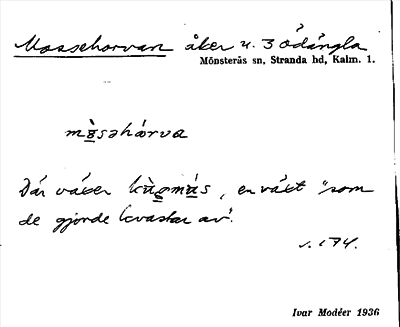 Mossehorvan åker u. 3 Ödängla
Mönsterås sn, Stranda hd, Kalm. l.
Där växer, en växt "som
de gjorde kvastar av".
s. 174.
Ivar Modéer 1936